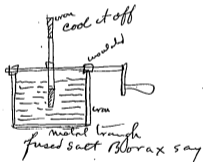 iron
cool it off
moulded
iron
metal trough
fused salt Borax say